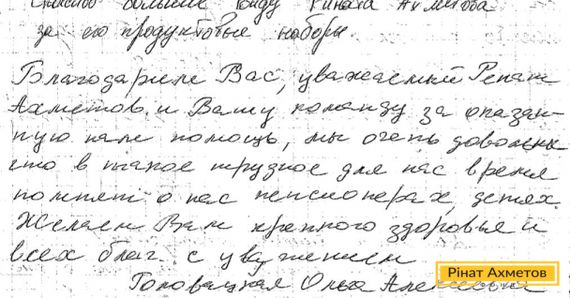 Спасибо большое Фонду Рината Ахметова
за его продуктовые наборы.
Благодарим Вас, уважаемый Ренат
Ахметов и Вашу команду за оказан-
ную нам помощь, мы очень довольны
что в такое трудное для нас время
помнят о нас пенсионерах, детях.
Желаем Вам крепкого здоровья и
всех благ. с уважением
Головацкая Ольга Алексеевна
Рінат Ахметов